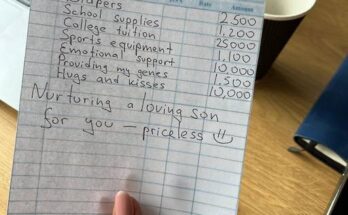 Rate Amount
Diapers 2,500
School supplies 1,200
College tuition 25000
Sports equipment 1,100
Emotional support 10,000
Providing my genes 1,500
Hugs and kisses 10,000
Nurturing a loving son
for you — priceless :)